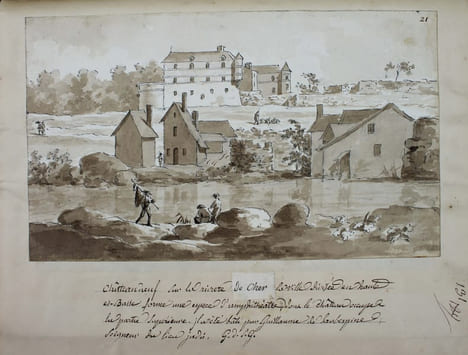 21
châteauneuf sur la riviere de Cher la ville divisée en haute
et Basse forme une espece d'amphithéatre dont le château occupe
la partie superieure. il a été bâti par Guillaume de l'aubespine
Seigneur du lieu jadis. G. d. l. G.